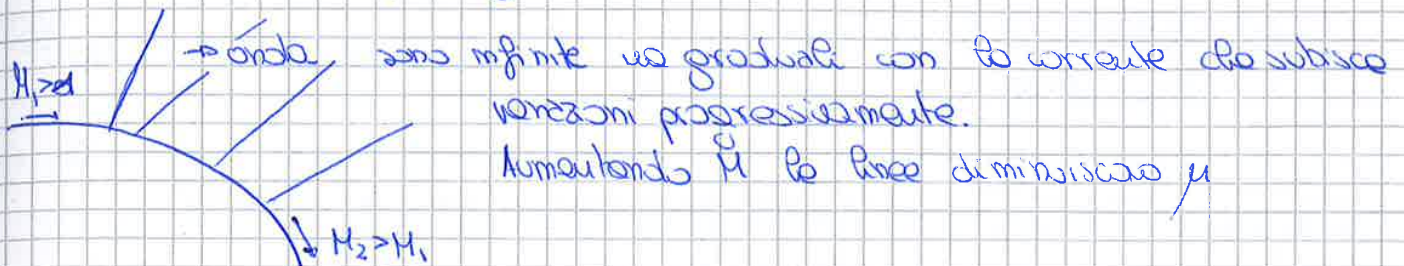 → onda, sono infinite ma graduali con la corrente che subisce
M₁>1
variazioni progressivamente.
Aumentando M le linee diminuiscono μ
M₂>M₁